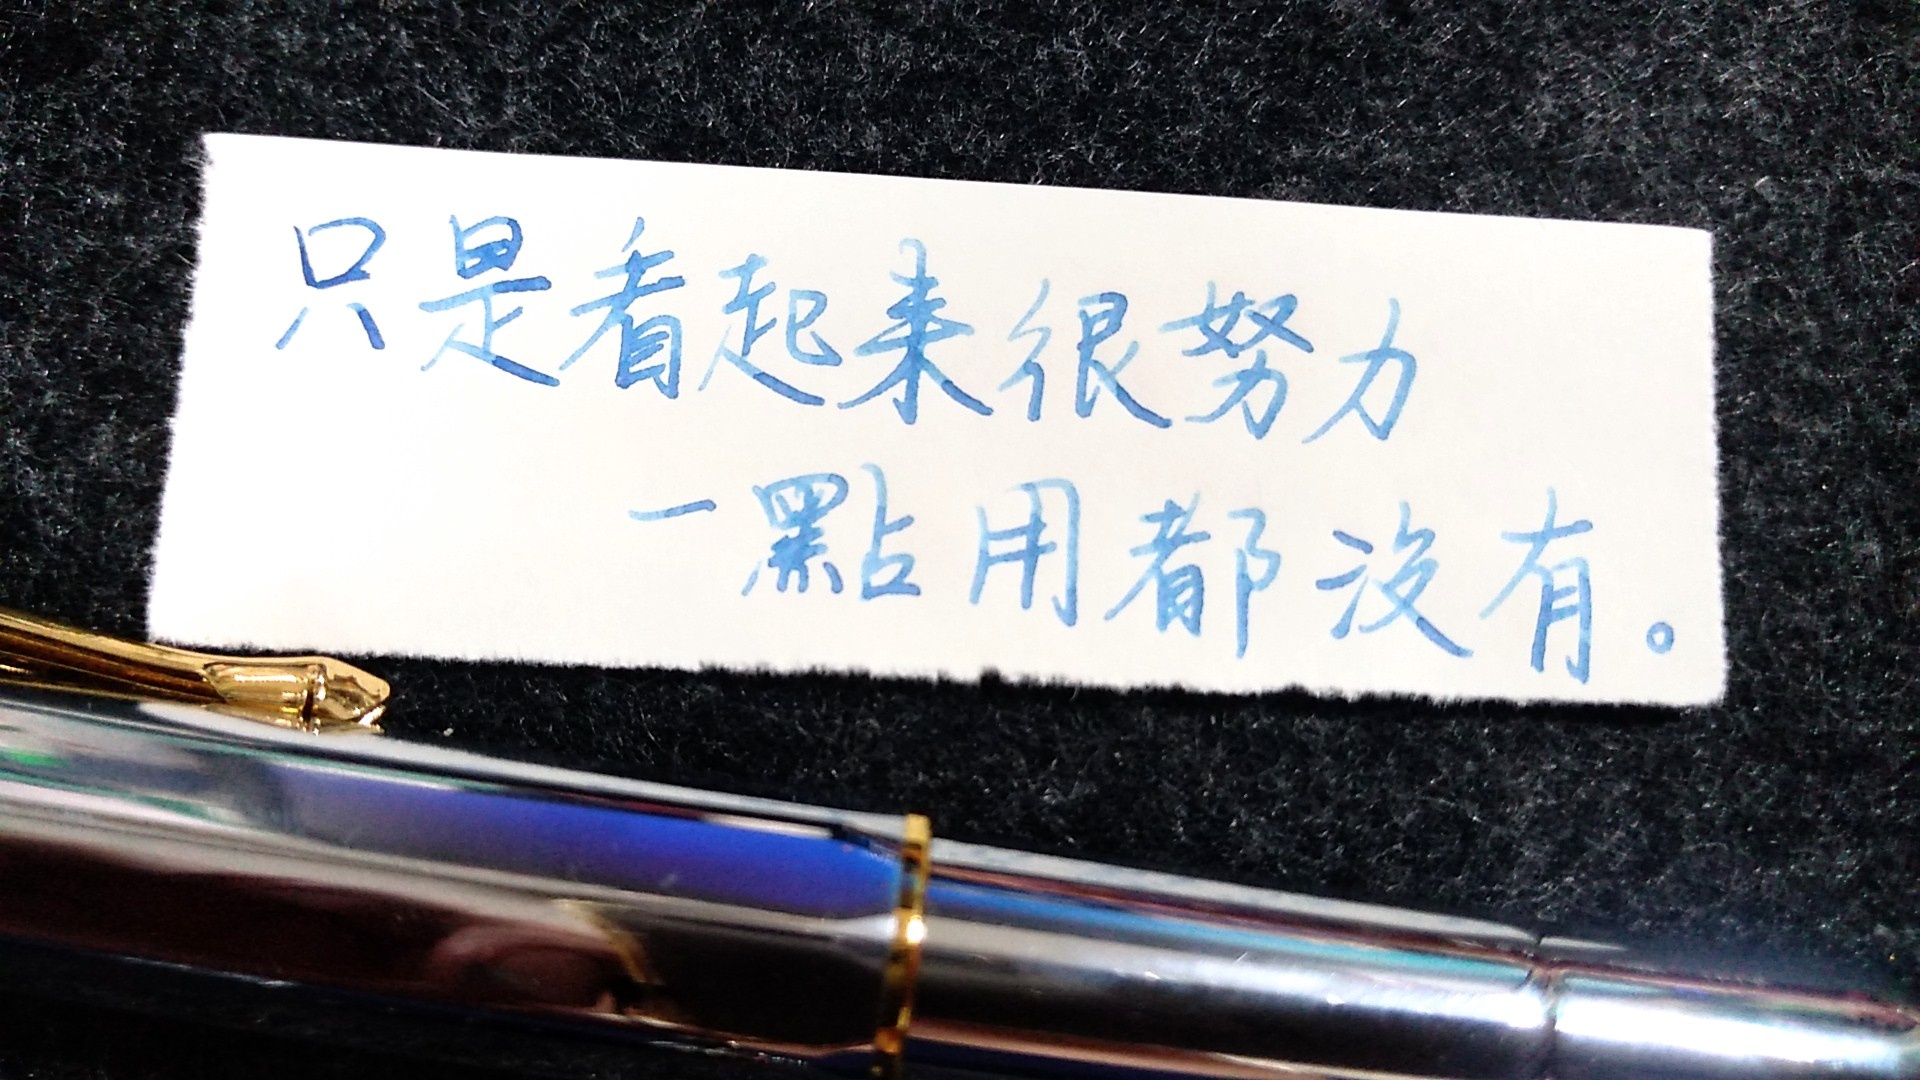 只是看起来很努力
一點用都沒有。